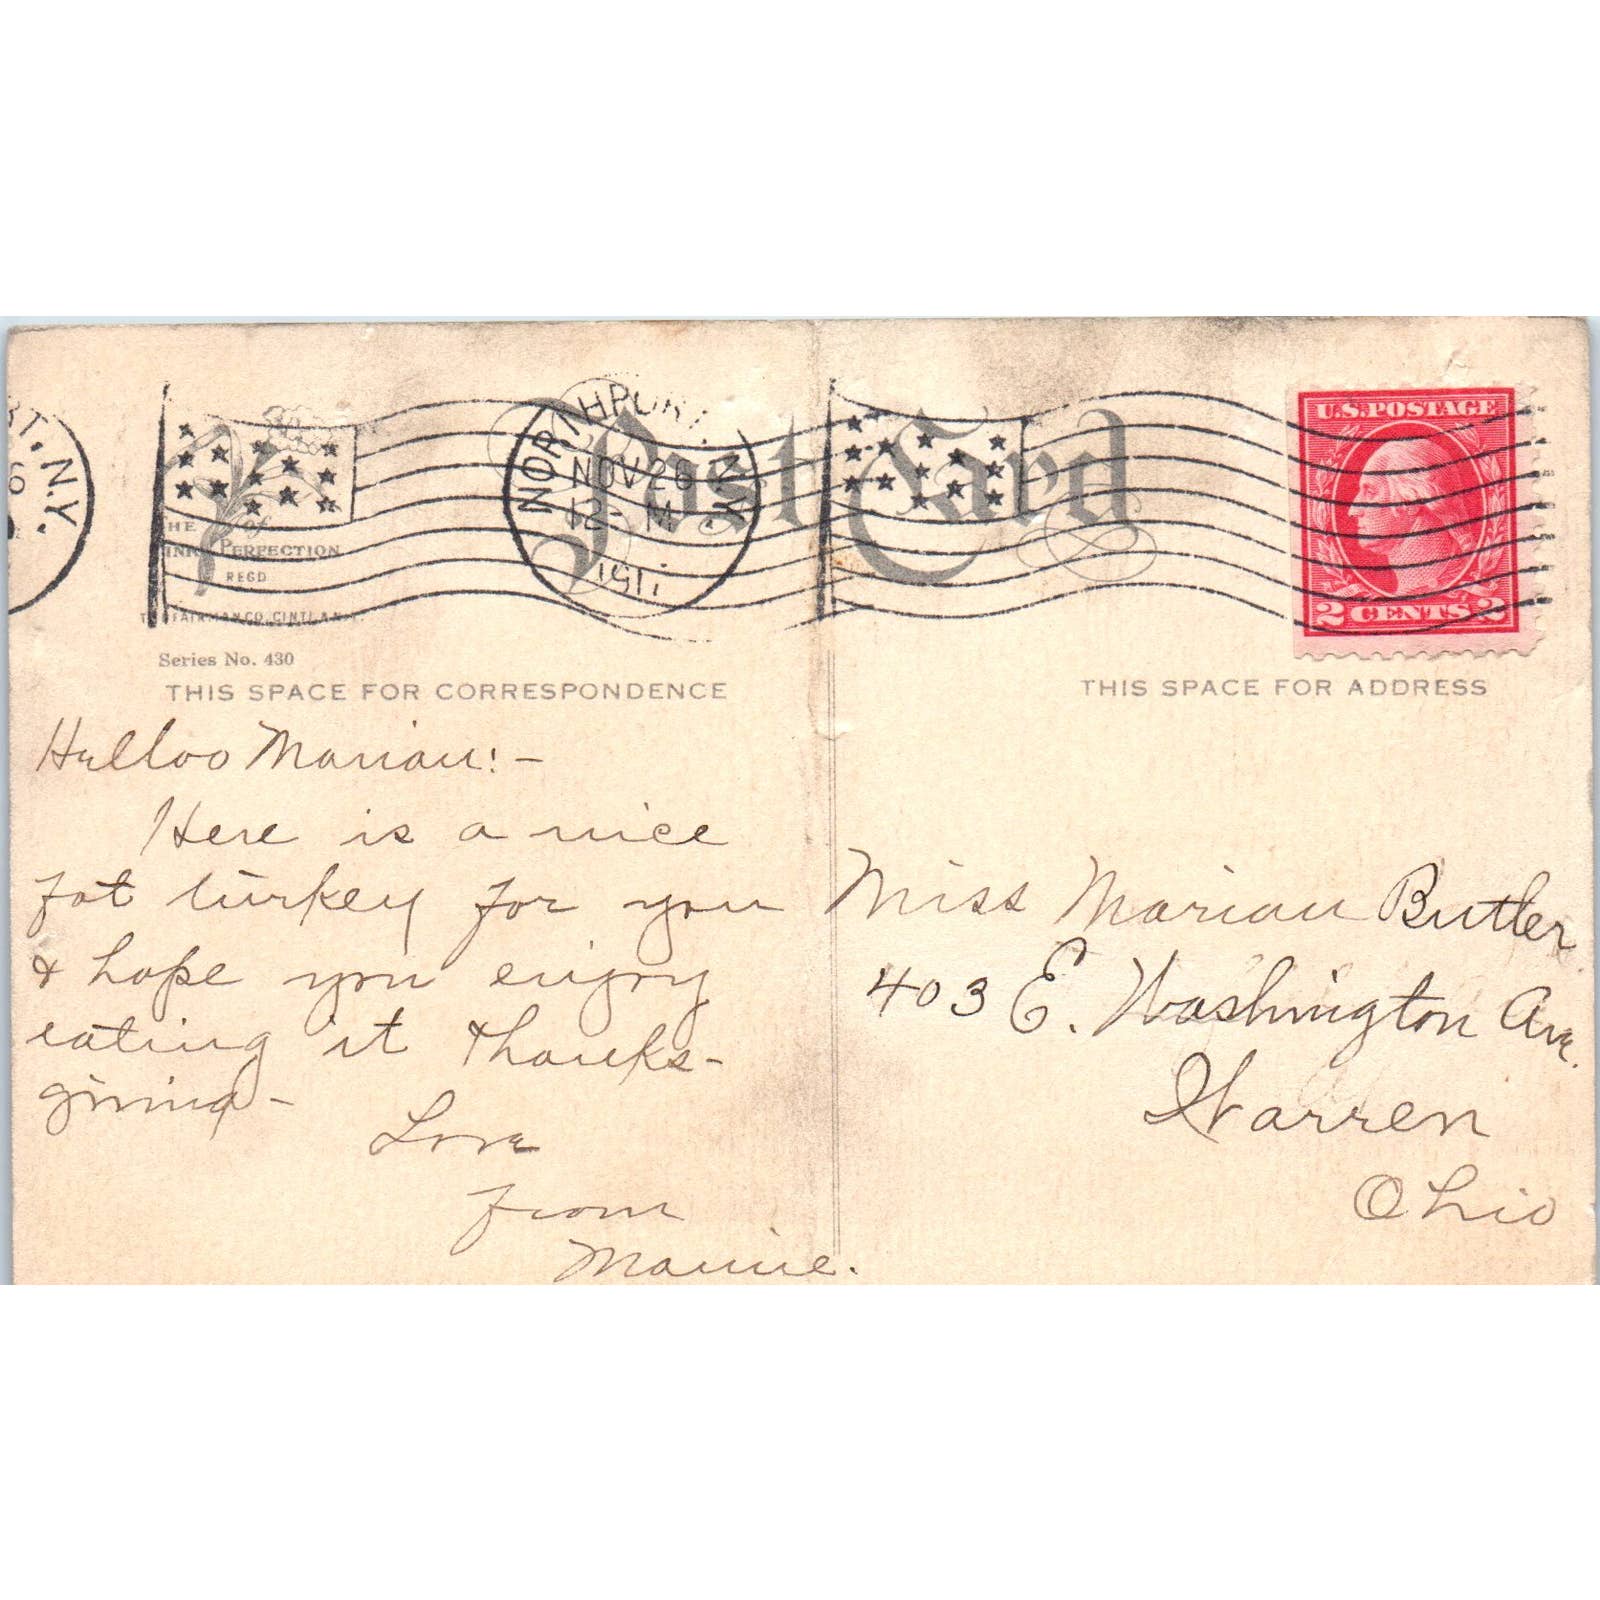 RT. N.Y.
6
NORTHPORT. N.Y.
NOV 26
12-M
1911
Post Card
U.S. POSTAGE
2 CENTS 2
THE
of
INK PERFECTION
REGD
THE FAIRMAN CO. CINTI. & N.Y.
Series No. 430
THIS SPACE FOR CORRESPONDENCE
THIS SPACE FOR ADDRESS
Helloo Marian:-
Here is a nice
fat turkey for you
& hope you enjoy
eating it thanks-
giving-
Love
from
Mamie.
Miss Marian Butler
403 E. Washington Ave.
Warren
Ohio